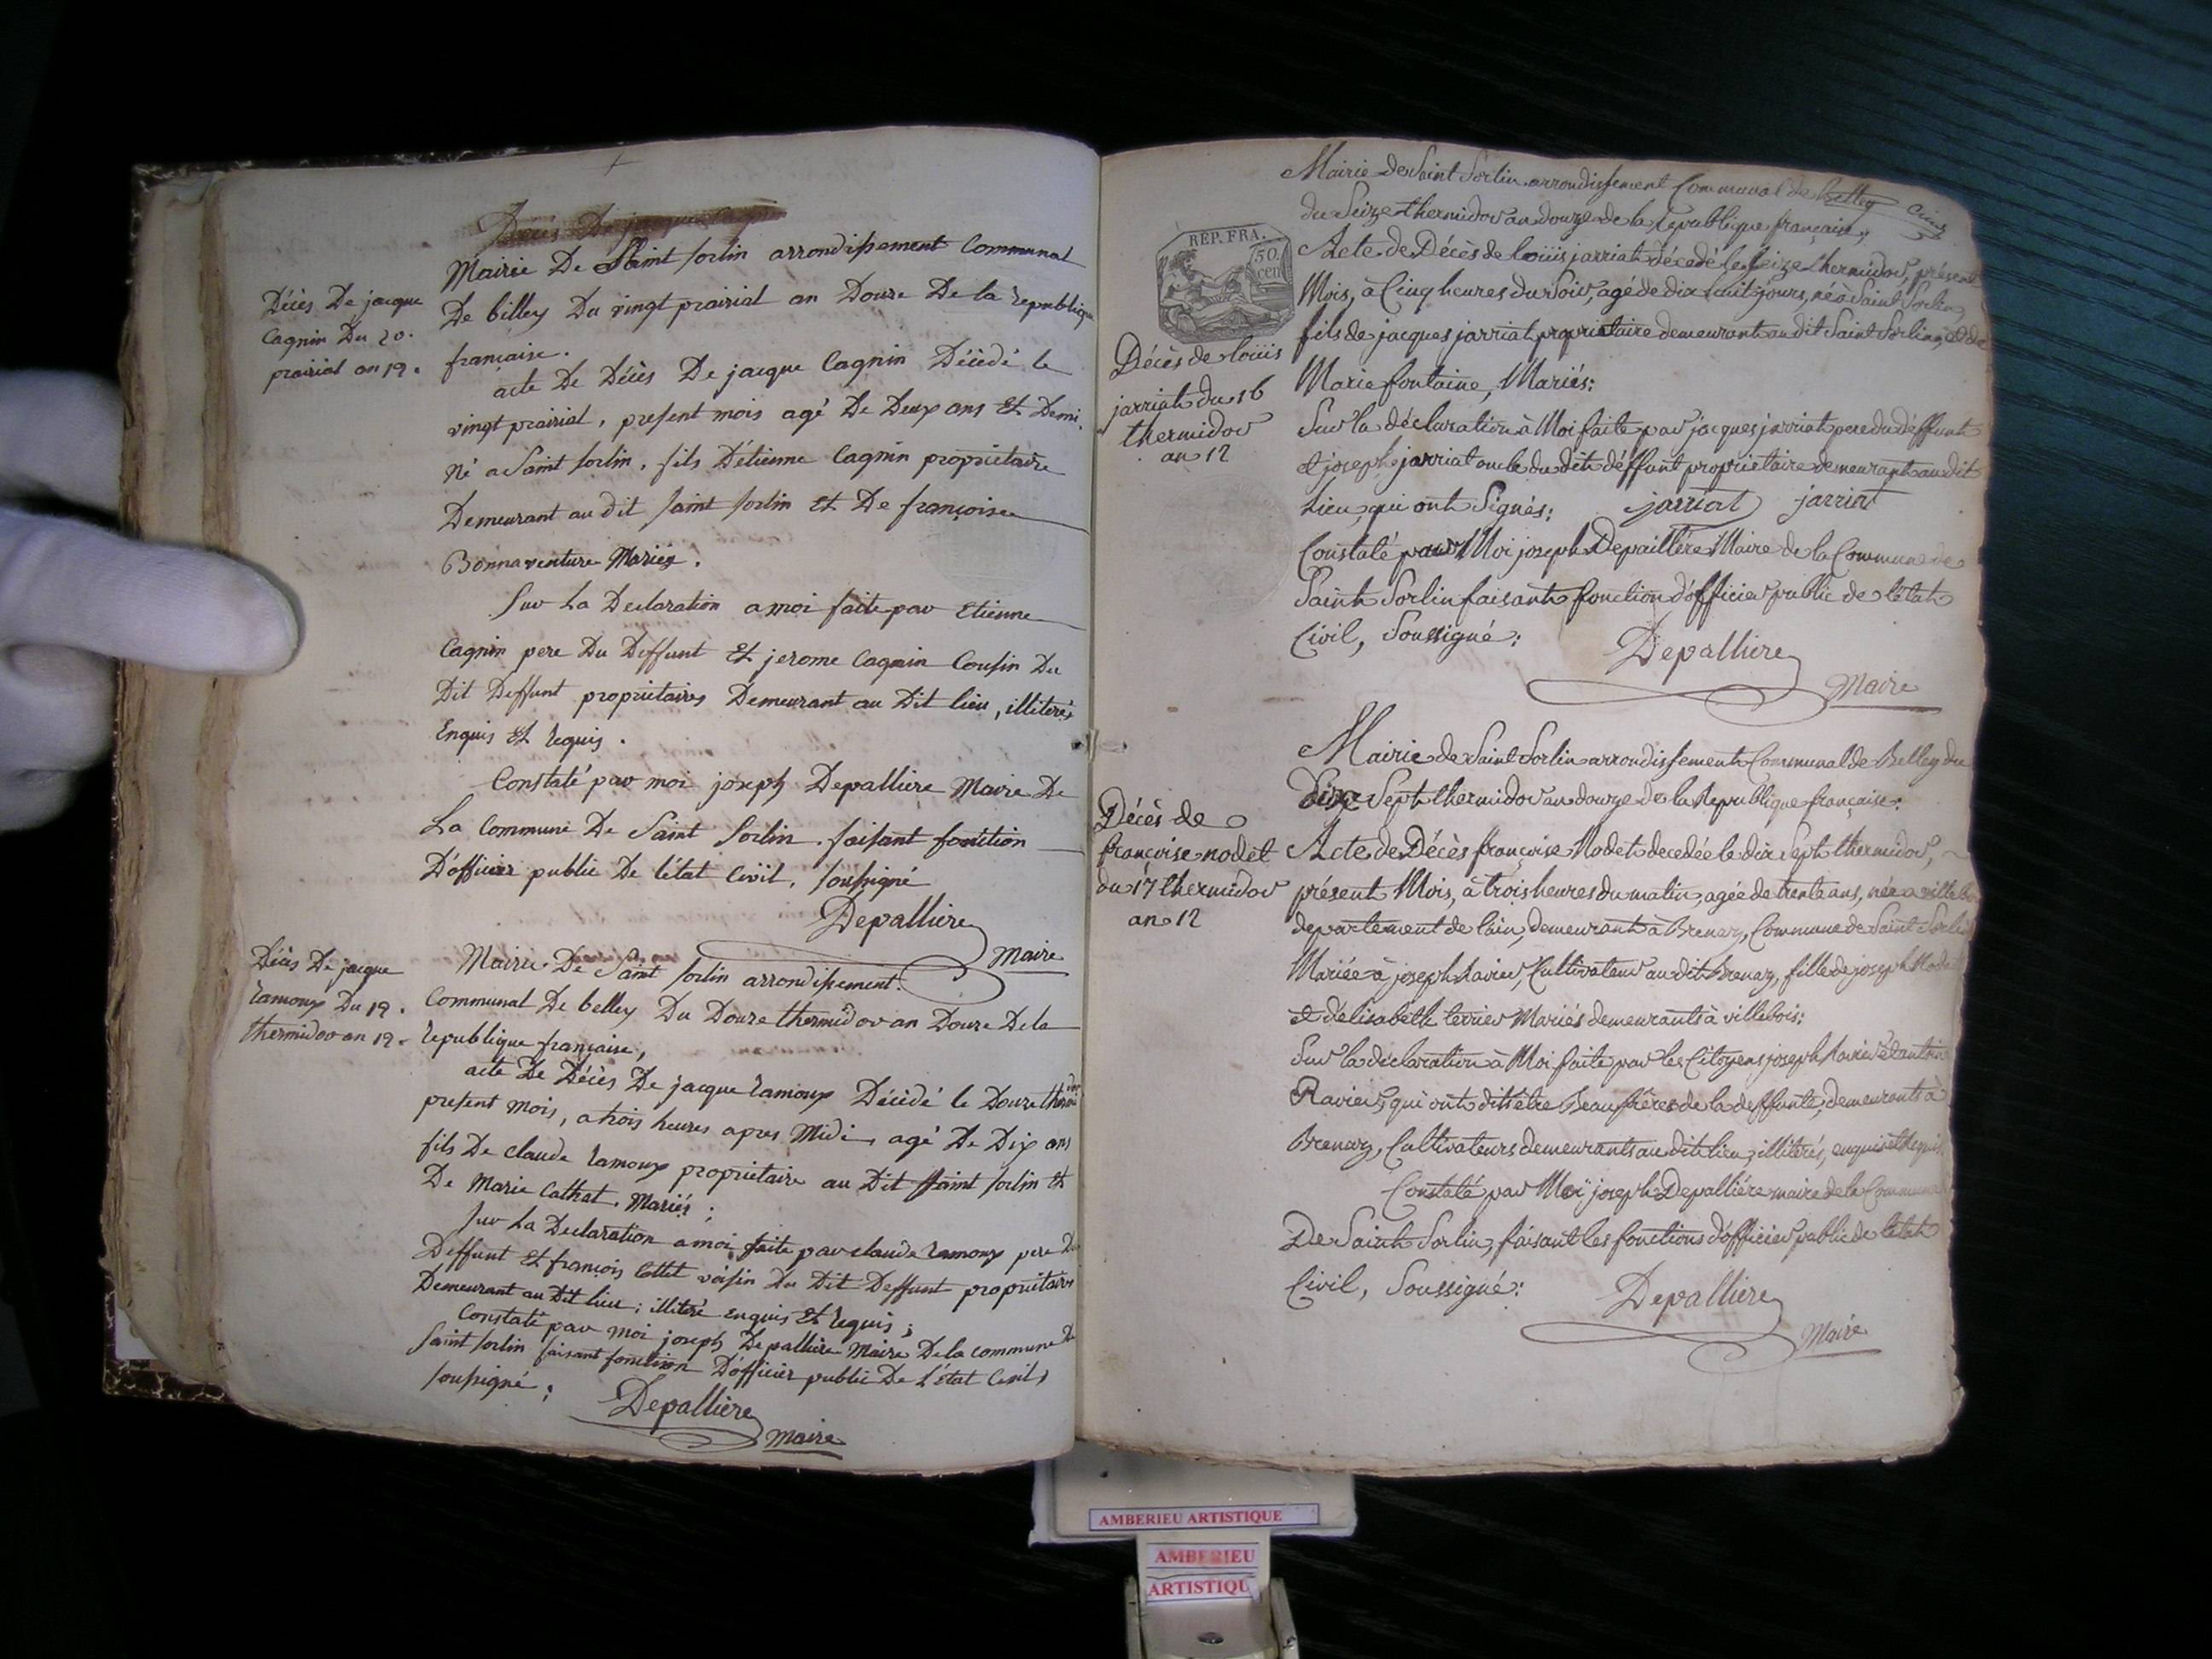 Décès De jacque
Cagnin Du 20.
prairial an 12.
Mairie De Saint Sorlin arrondissement Communal
De billey Du vingt prairial an Douze De la republique
française.
acte De Décès De jacque Cagnin Décédé le
vingt prairial, present mois agé De Deux ans Et Demi,
né a Saint Sorlin, fils D'étienne Cagnin propriétaire
Demeurant au dit Saint Sorlin Et De françoise
Bonnaventure Mariés.
Sur La Declaration a moi faite par Etienne
Cagnin pere Du Deffunt Et jerome Cagnin Cousin Du
Dit Deffunt propriétaires Demeurant au Dit lieu, illiterés
Enquis Et requis.
Constaté par moi joseph Depalliere Maire De
La Commune De Saint Sorlin faisant fonction
D'officier public De l'état Civil, soussigné
Depalliere
Maire
Décès De jacque
ramoux Du 12.
thermidor an 12.
Mairie De Saint Sorlin arrondissement
Communal De belley Du Douze thermidor an Douze De la
republique française,
acte De Décès De jacque ramoux Décédé le Douze thermidor
present mois, a trois heures apres Midi, agé De Dix ans
fils De claude ramoux propriétaire au Dit Saint Sorlin Et
De Marie Cathat, Mariés;
Sur La Declaration a moi faite par claude ramoux pere Du
Deffunt Et françois Collet voisin Du Dit Deffunt propriétaires
Demeurant au Dit lieu; illiteré enquis Et requis;
Constaté par moi joseph Depalliere Maire De la commune De
Saint Sorlin faisant fonction D'officier public De L'état Civil,
soussigné;
Depalliere
Maire
Mairie de Saint Sorlin arrondissement Communal de Belley
du Seize thermidor an douze de la republique française,
cinq
REP. FRA.
50.
cen
Décès de loüis
jarriat du 16
thermidor
an 12
Acte de Décès de loüis jarriat décedé le seize thermidor, présent
Mois, à Cinq heures du soir, agé de dix huit jours, né à Saint Sorlin,
fils de jacques jarriat propriétaire demeurant au dit Saint Sorlin, et de
Marie fontaine, Mariés:
Sur la déclaration à Moi faite par jacques jarriat pere du déffunt
et joseph jarriat oncle du dit déffunt propriétaire demeurant au dit
Lieu, qui ont Signés: jarriat jarriat
Constaté par Moi joseph Depalliére Maire de la Commune de
Saint Sorlin faisant fonction d'officier public de l'état
Civil, Soussigné:
Depalliere
Maire
Décès de
françoise nodet
du 17 thermidor
an 12
Mairie de Saint Sorlin arrondissement Communal de Belley du
Dix Sept thermidor an douze de la Republique française:
Acte de Décès françoise Nodet decedée le dix Sept thermidor,
présent Mois, à trois heures du matin, agée de trente ans, née a
departement de lain, demeurant à Brenaz, Commune de Saint Sorlin
Mariée à joseph Ravier, Cultivateur au dit Brenaz, fille de joseph Nodet
et d'élisabeth terrier Mariés demeurants à villebois:
Sur la déclaration à Moi faite par les Citoyens joseph Ravier et antoine
Ravier, qui ont dits être Beaufrères de la deffunte, demeurants à
Brenaz, Cultivateurs demeurants au dit lieu, illiterés, enquis et requis
Constaté par Moi joseph Depalliére maire de la Commune
De Saint Sorlin, faisant les fonctions d'officier public de l'état
Civil, Soussigné:
Depalliere
Maire
AMBERIEU ARTISTIQUE
AMBERIEU
ARTISTIQU